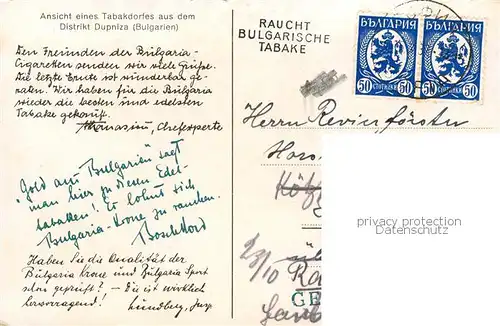 Ansicht eines Tabakdorfes aus dem
Distrikt Dupniza (Bulgarien)
Den Freunden der Bulgaria-
Cigaretten senden wir viele Grüße.
Die letzte Ernte ist wunderbar ge-
raten! Wir haben für die Bulgaria
wieder die besten und edelsten
Tabake gekauft.
Athanasiu, Chefexperte
"Gold aus Bulgarien" sagt
man hier zu diesen Edel-
tabaken! Es lohnt sich
Bulgaria-Krone zu rauchen.
Haben Sie die Qualität der
Bulgaria Krone und Bulgaria Sport
schon geprüft? – Sie ist wirklich
hervorragend!
Lundberg,
RAUCHT
BULGARISCHE
TABAKE
БЪЛГАРИЯ
50 СТОТИНКИ 50
БЪЛГАРИЯ
50 СТОТИНКИ 50
Herrn Revierförster
privacy protection
www.oldthing.de